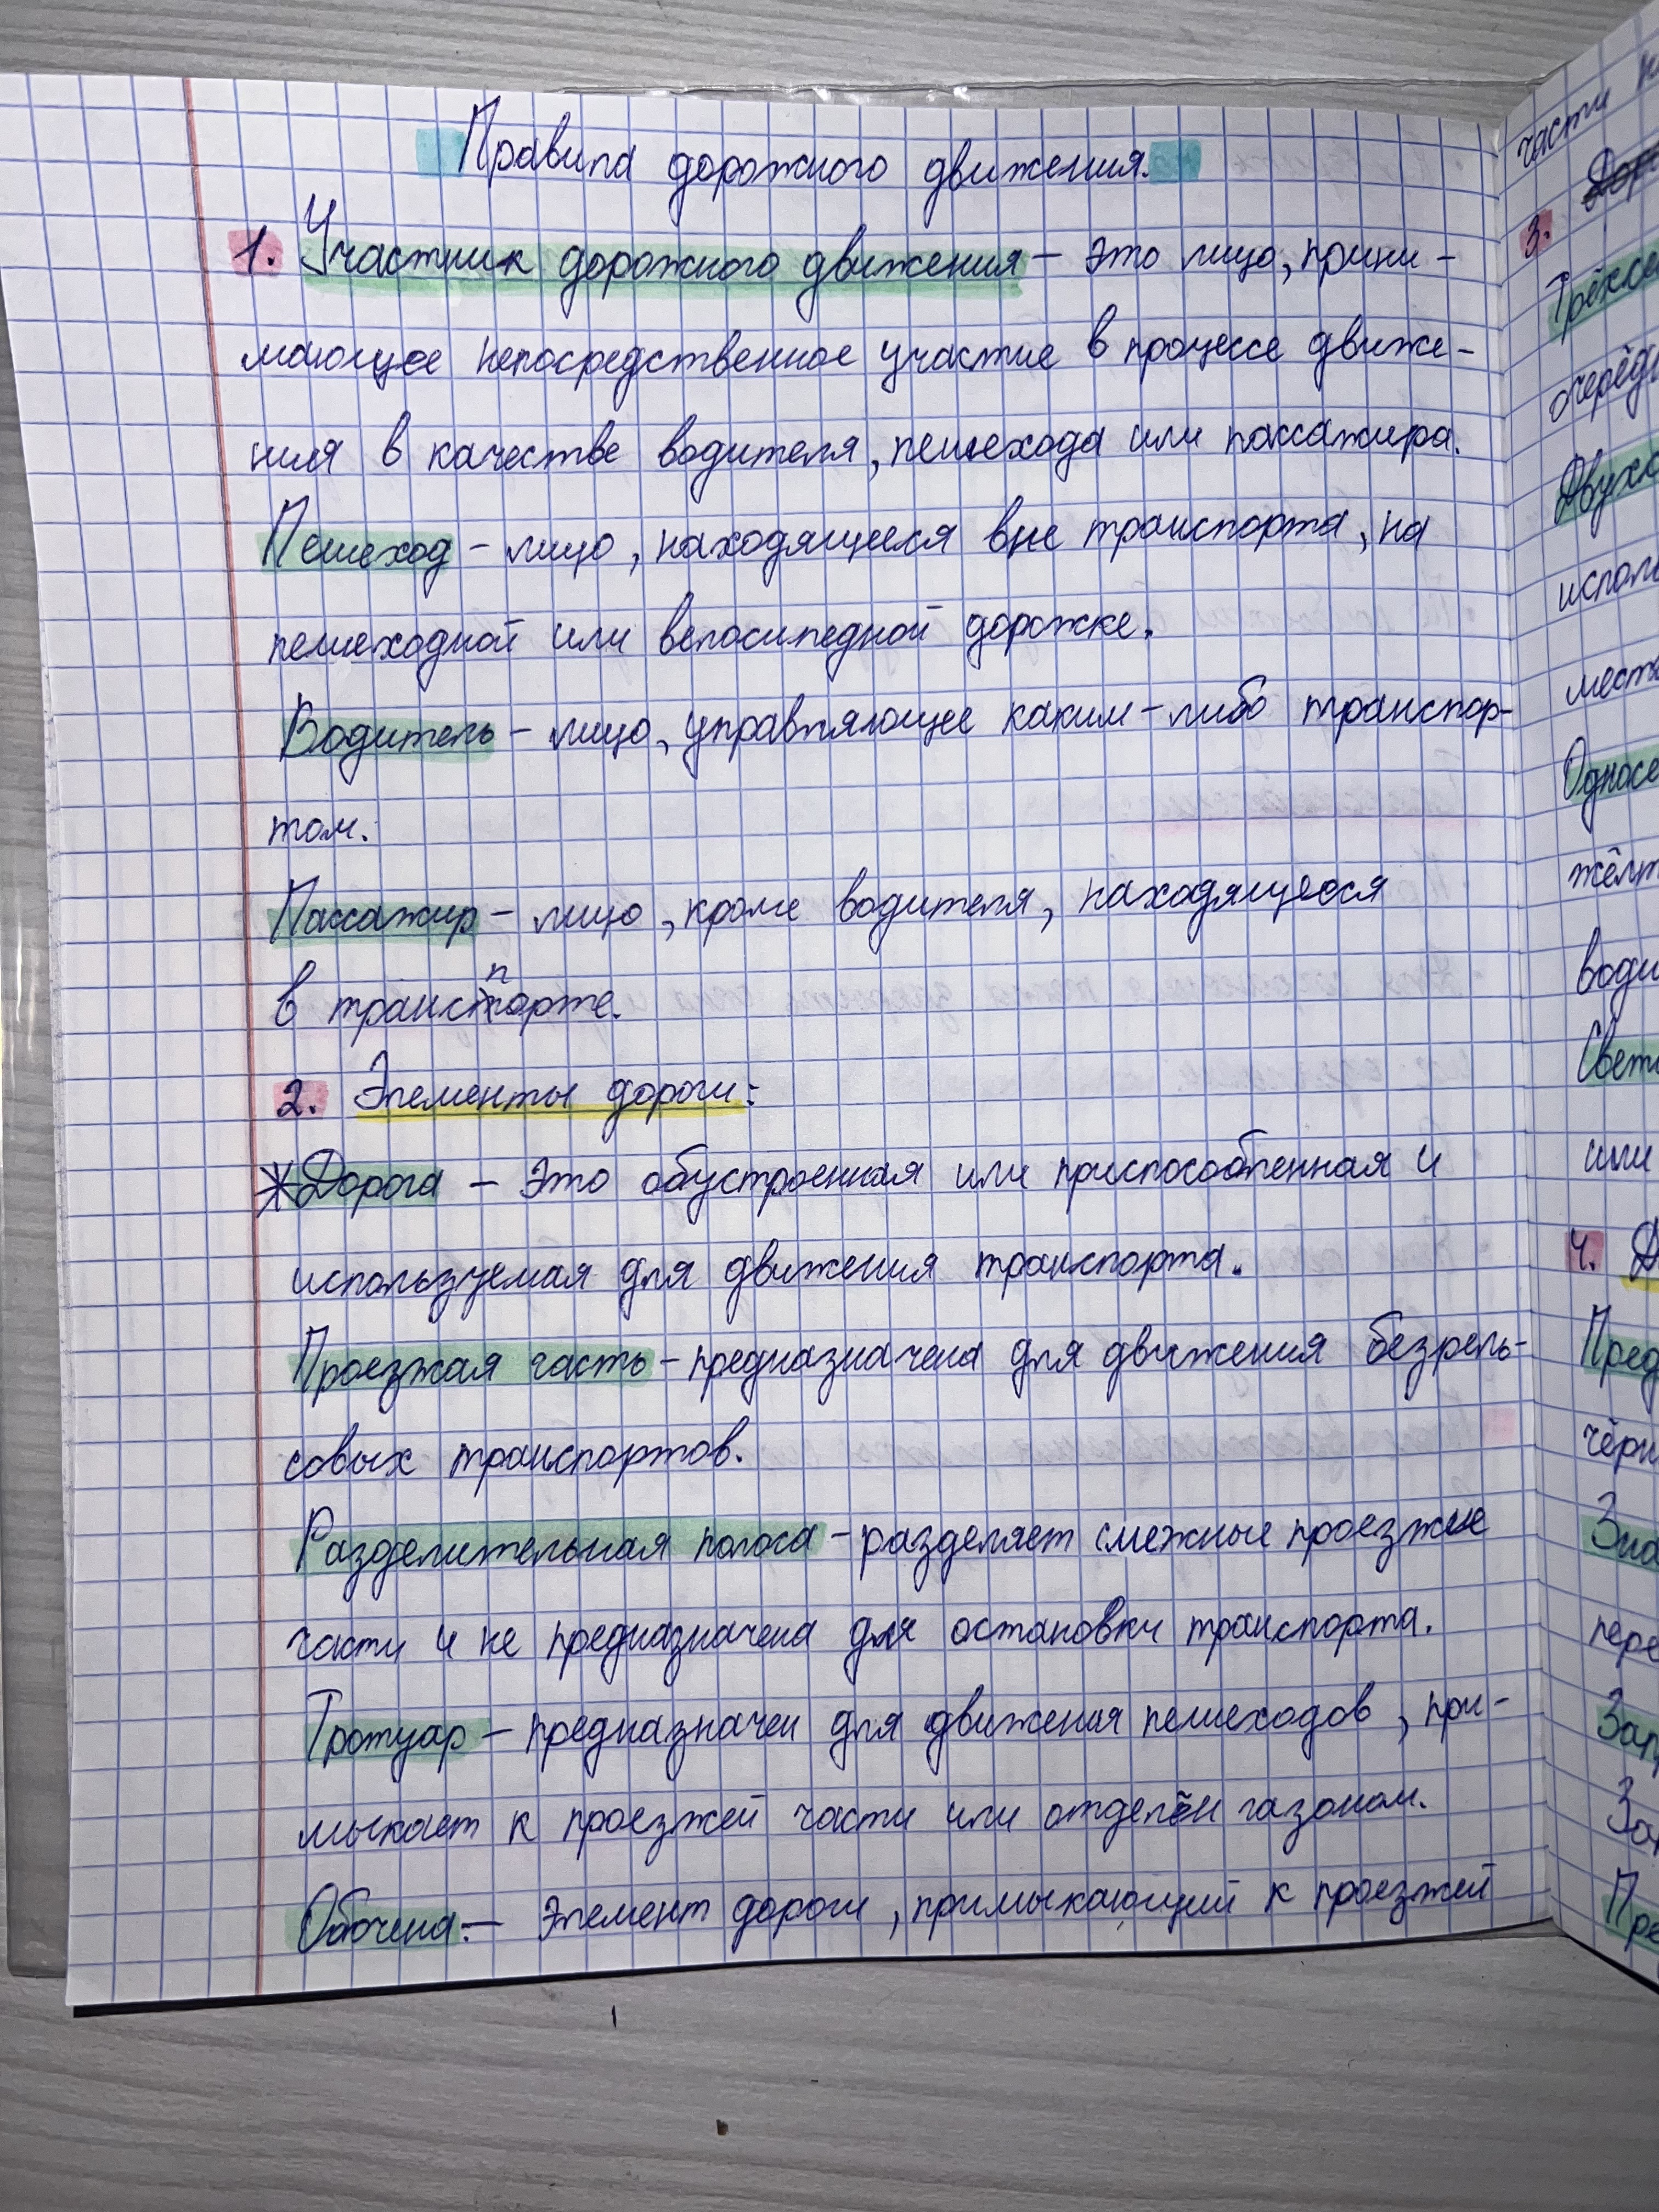 Правила дорожного движения.
1. Участник дорожного движения – это лицо, прини-
мающее непосредственное участие в процессе движе-
ния в качестве водителя, пешехода или пассажира.
Пешеход – лицо, находящееся вне транспорта, на
пешеходной или велосипедной дорожке.
Водитель – лицо, управляющее каким-либо транспор-
том.
Пассажир – лицо, кроме водителя, находящееся
в транспорте.
2. Элементы дороги:
*Дорога – это обустроенная или приспособленная и
используемая для движения транспорта.
Проезжая часть – предназначена для движения безрель-
совых транспортов.
Разделительная полоса – разделяет смежные проезжие
части и не предназначена для остановки транспорта.
Тротуар – предназначен для движения пешеходов, при-
мыкает к проезжей части или отделён газоном.
Обочина: – элемент дороги, примыкающий к проезжей
части
3.
или
4.